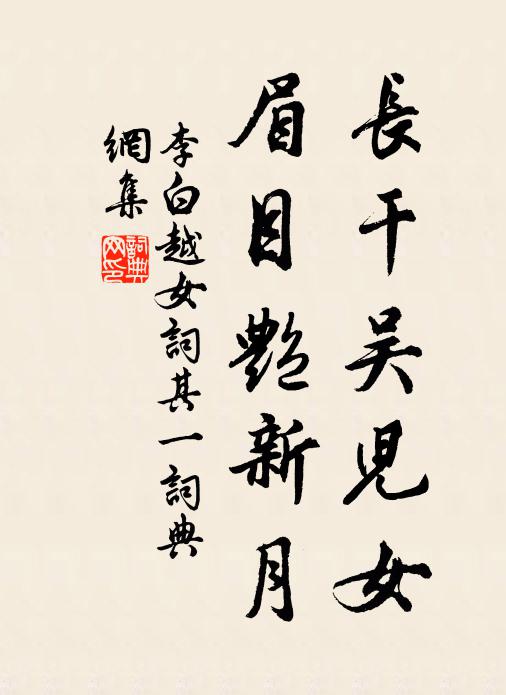 長干吴兒女
眉目艷新月
李白越女詞其一詞典
網集
詞典
网印